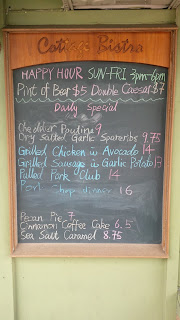 Cottage Bistro
HAPPY HOUR SUN-FRI 3pm-6pm
Pint of Bear $5 Double Caesar $7
Daily Special
Cheddar Poutine 9
Dry Salted Garlic Spareribs 9.75
Grilled Chicken w Avocado 14
Grilled Sausage w Garlic Potato
Pulled Pork Club 14
Pork Chop dinner 16
Pecan Pie 7
Cinnamon Coffee Cake 6.5
Sea Salt Caramel 8.75